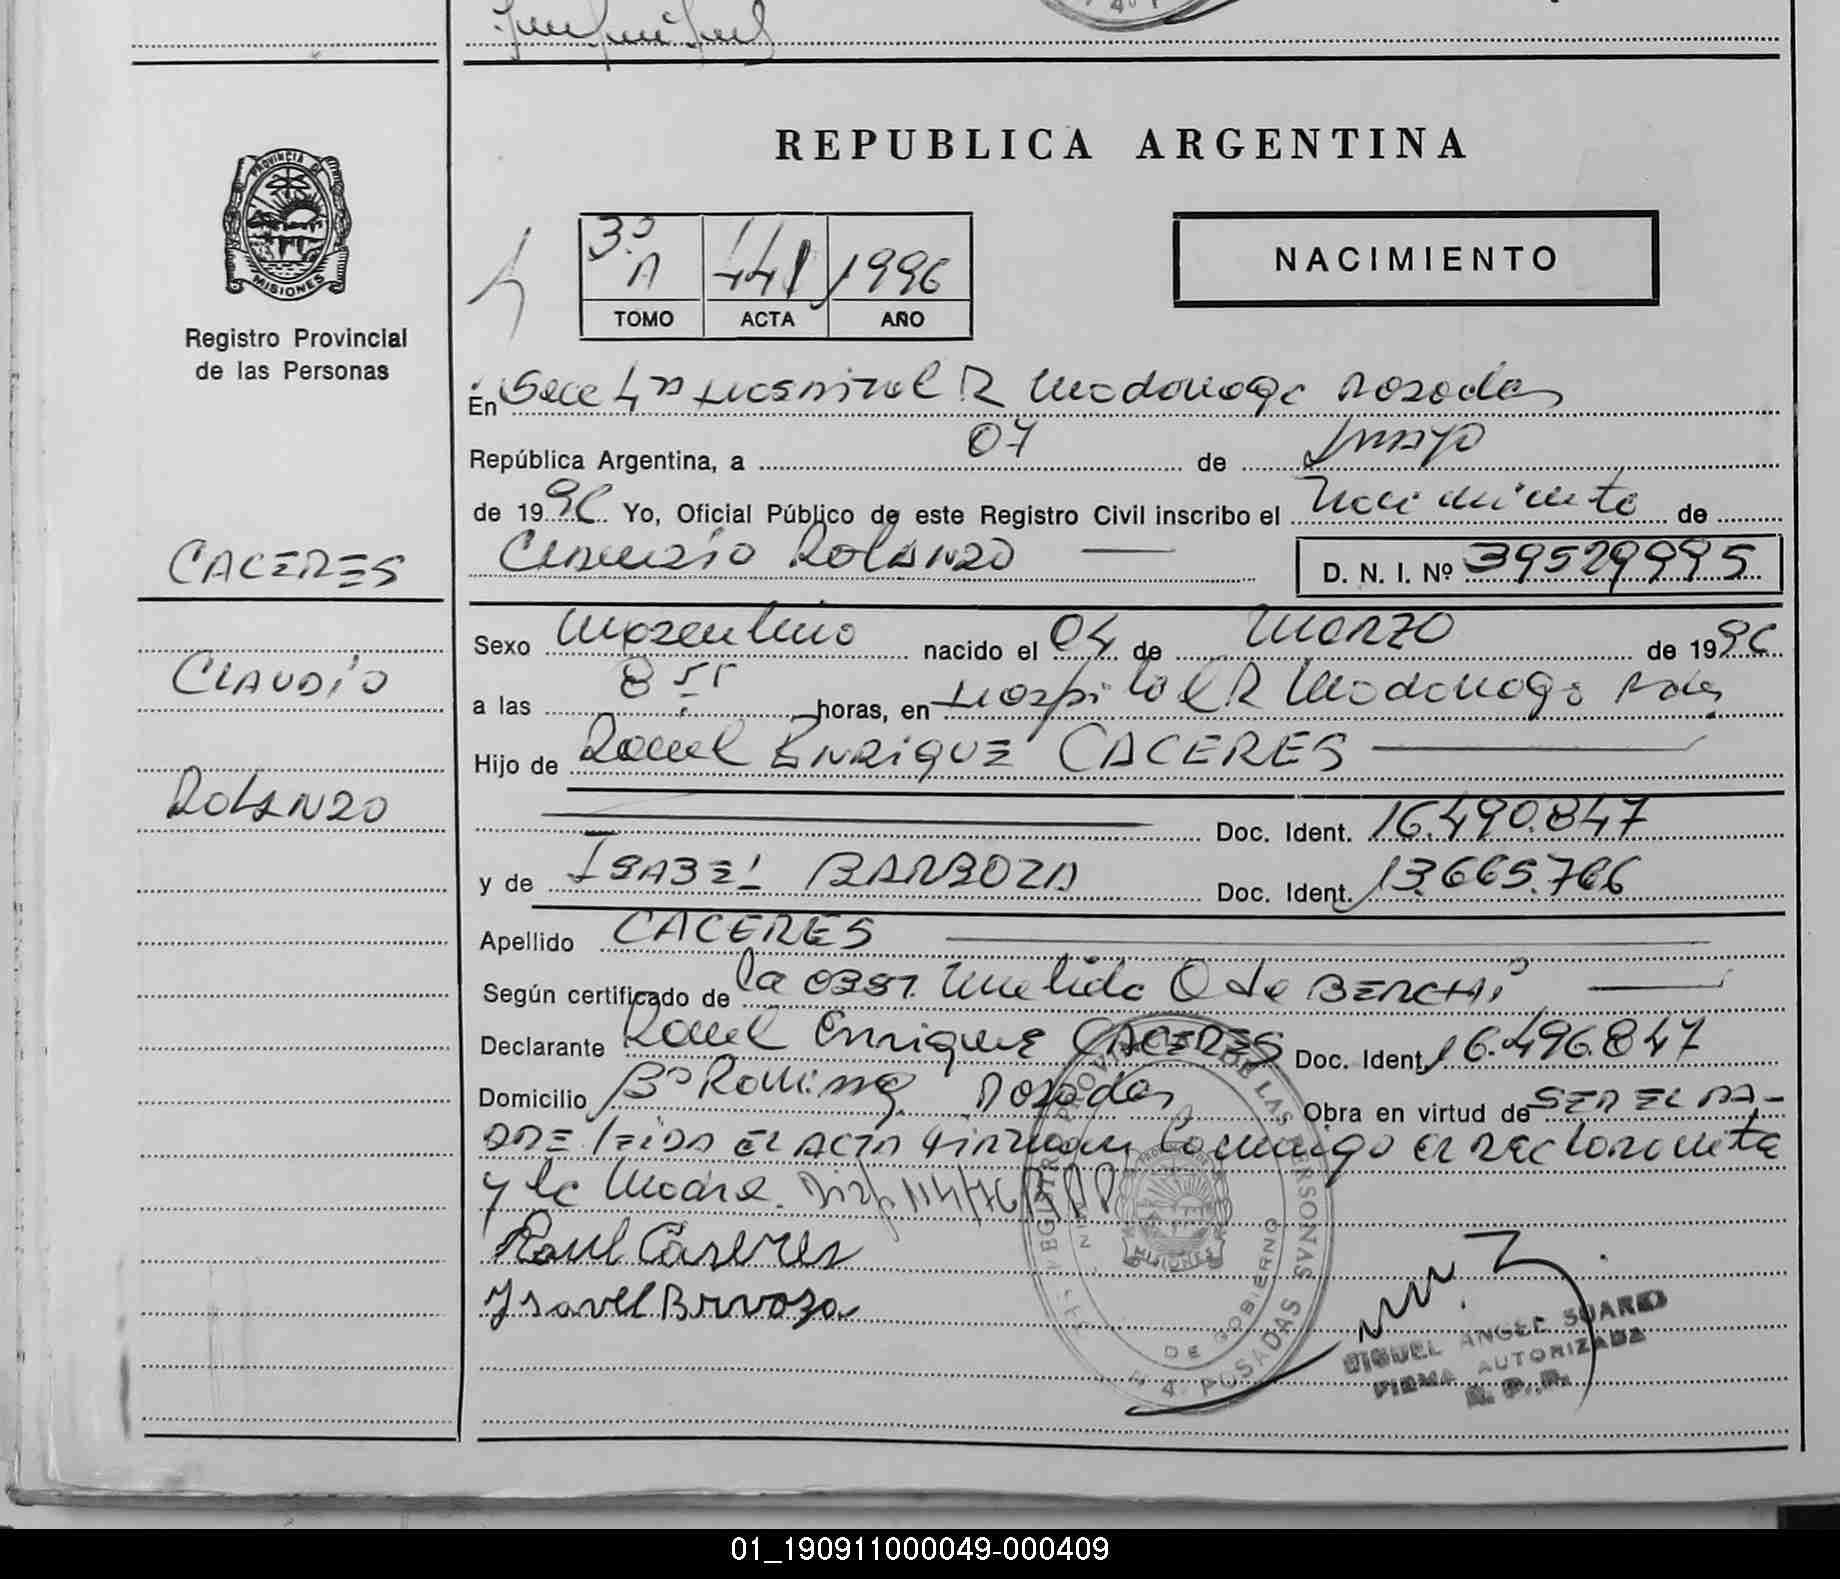 REPUBLICA ARGENTINA
PROVINCIA DE
MISIONES
Registro Provincial
de las Personas
3º A 441 1996
TOMO ACTA AÑO
NACIMIENTO
En Secc 4ta Hospital R Madariaga Posadas
República Argentina, a 07 de Mayo
de 1996 Yo, Oficial Público de este Registro Civil inscribo el Nacimiento de
CLAUDIO ROLANDO D. N. I. Nº 39529995
CACERES
CLAUDIO
ROLANDO
Sexo Masculino nacido el 04 de Marzo de 1996
a las 8 55 horas, en Hospital R Madariaga Pdas
Hijo de Raul ENRIQUE CACERES
Doc. Ident. 16.490.847
y de ISABEL BARBOZA Doc. Ident. 13.665.766
Apellido CACERES
Según certificado de la OBST. Nelida O de BERCHI
Declarante Raul Enrique CACERES Doc. Ident. 16.496.847
Domicilio Bº Posadas Obra en virtud de SER EL PA-
DRE leida EL ACTA firman conmigo el declarante
y la Madre.
Raul Caseres
Ysavel Brvoza
REGISTRO PROVINCIAL DE LAS PERSONAS
MISIONES
DE GOBIERNO
4 POSADAS
MIGUEL ANGEL SUAREZ
FIRMA AUTORIZADA
R. P. P.
01_190911000049-000409